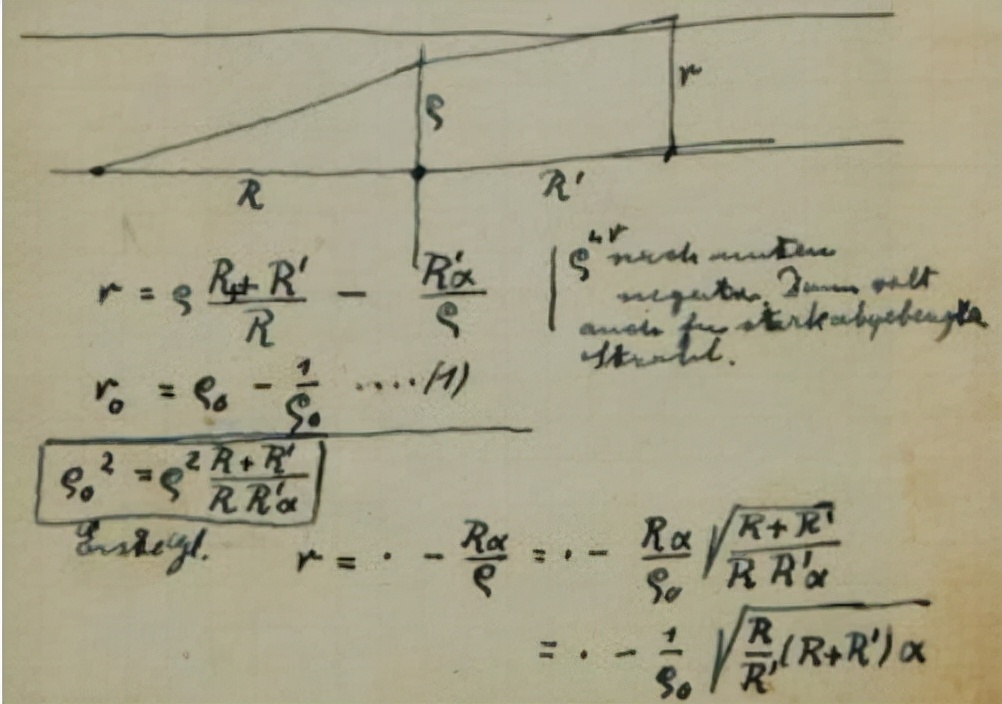 r
ρ
R R'
r = ρ (R + R')/R − R'α/ρ
ρ nach unten
negativ. Dann gilt
auch für stark abgebeugte
Strahl.
r₀ = ρ₀ − 1/ρ₀ ....(1)
ρ₀² = ρ² (R + R')/(R R'α)
r = · − Rα/ρ = · − Rα/ρ₀ √((R + R')/(R R'α))
= · − 1/ρ₀ √(R/R' (R+R') α)